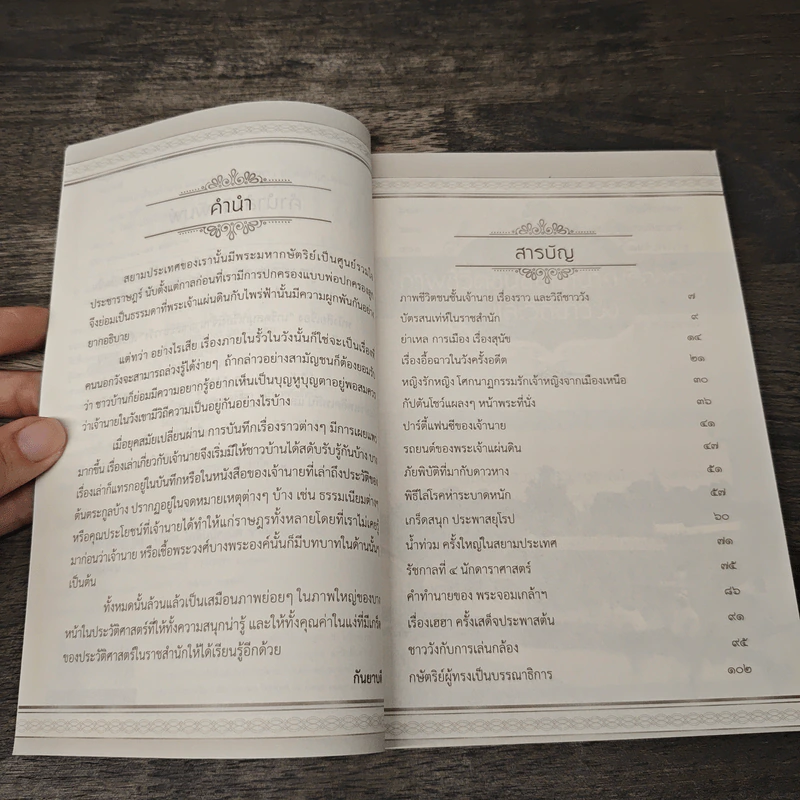 คำนำ
สยามประเทศของเรานั้นมีพระมหากษัตริย์เป็นศูนย์รวมใจ
ประชาราษฎร์ นับตั้งแต่กาลก่อนที่เรามีการปกครองแบบพ่อปกครองลูก
จึงย่อมเป็นธรรมดาที่พระเจ้าแผ่นดินกับไพร่ฟ้านั้นมีความผูกพันกันอย่าง
ยากอธิบาย
แต่ทว่า อย่างไรเสีย เรื่องภายในรั้วในวังนั้นก็ใช่จะเป็นเรื่องที่
คนนอกวังจะสามารถล่วงรู้ได้ง่ายๆ ถ้ากล่าวอย่างสามัญชนก็ต้องยอมรับ
ว่า ชาวบ้านก็ย่อมมีความอยากรู้อยากเห็นเป็นบุญหูบุญตาอยู่พอสมควร
ว่าเจ้านายในวังเขามีวิถีความเป็นอยู่กันอย่างไรบ้าง
เมื่อยุคสมัยเปลี่ยนผ่าน การบันทึกเรื่องราวต่างๆ มีการเผยแพร่
มากขึ้น เรื่องเล่าเกี่ยวกับเจ้านายจึงเริ่มมีให้ชาวบ้านได้สดับรับรู้กันบ้าง บาง
เรื่องเล่าก็แทรกอยู่ในบันทึกหรือในหนังสือของเจ้านายที่เล่าถึงประวัติของ
ต้นตระกูลบ้าง ปรากฏอยู่ในจดหมายเหตุต่างๆ บ้าง เช่น ธรรมเนียมต่างๆ
หรือคุณประโยชน์ที่เจ้านายได้ทำให้แก่ราษฎรทั้งหลายโดยที่เราไม่เคยรู้
มาก่อนว่าเจ้านาย หรือเชื้อพระวงศ์บางพระองค์นั้นก็มีบทบาทในด้านนั้นๆ
เป็นต้น
ทั้งหมดนั้นล้วนแล้วเป็นเสมือนภาพย่อยๆ ในภาพใหญ่ของบาง
หน้าในประวัติศาสตร์ที่ให้ทั้งความสนุกน่ารู้ และให้ทั้งคุณค่าในแง่ที่มีเกร็ด
ของประวัติศาสตร์ในราชสำนักให้ได้เรียนรู้อีกด้วย
สารบัญ
ภาพชีวิตชนชั้นเจ้านาย เรื่องราว และวิถีชาววัง ๗
บัตรสนเท่ห์ในราชสำนัก ๙
ย่าเหล การเมือง เรื่องสุนัข ๑๔
เรื่องอื้อฉาวในวังครั้งอดีต ๒๑
หญิงรักหญิง โศกนาฏกรรมรักเจ้าหญิงจากเมืองเหนือ ๓๐
กัปตันโชว์แผลงๆ หน้าพระที่นั่ง ๓๖
ปาร์ตี้แฟนซีของเจ้านาย ๔๑
รถยนต์ของพระเจ้าแผ่นดิน ๔๗
ภัยพิบัติที่มากับดาวหาง ๕๑
พิธีไล่โรคห่าระบาดหนัก ๕๗
เกร็ดสนุก ประพาสยุโรป ๖๐
น้ำท่วม ครั้งใหญ่ในสยามประเทศ ๗๑
รัชกาลที่ ๔ นักดาราศาสตร์ ๗๕
คำทำนายของ พระจอมเกล้าฯ ๘๖
เรื่องเฮฮา ครั้งเสด็จประพาสต้น ๙๑
ชาววังกับการเล่นกล้อง ๙๕
กษัตริย์ผู้ทรงเป็นบรรณาธิการ ๑๐๒